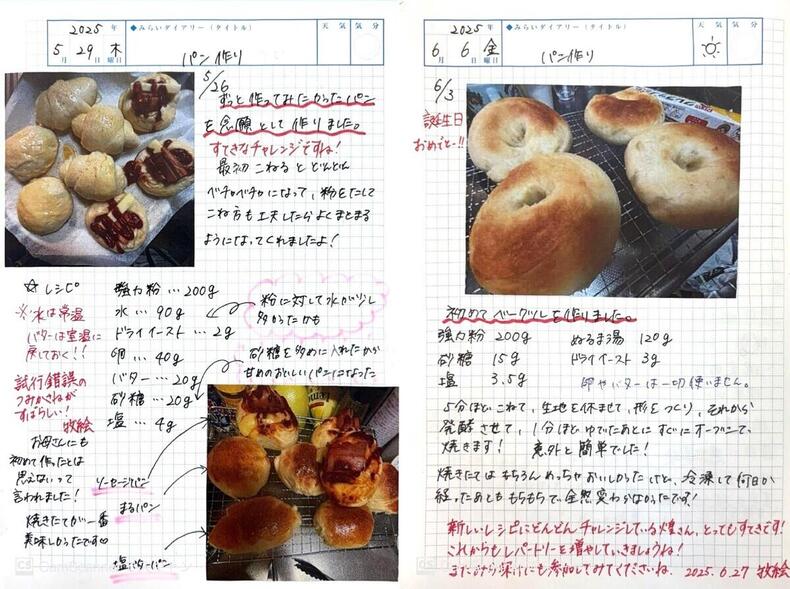 2025
5月 29日 木曜日
◆みらいダイアリー(タイトル)
天気
気分
パン作り
5/26
ずっと作ってみたかったパン
を念願として作りました。
すてきなチャレンジですね!
最初こねるとどんどん
ベチャベチャになって、粉をたして
こね方も工夫したらよくまとまる
ようになってくれましたよ!
☆レシピ
※水は常温
バターは室温に
戻しておく!!
強力粉…200g
水…90g
ドライイースト…2g
卵…40g
バター…20g
砂糖…20g
塩…4g
粉に対して水が少し
多かったかも
砂糖を多めに入れたから
甘めのおいしいパンになった
試行錯誤の
つみかさねが
すばらしい!
牧絵
お母さんにも
初めて作ったとは
思えないって
言われました!
焼きたてが一番
美味しかったです♡
ソーセージパン
まるパン
塩バターパン
2025
6月 6日 金曜日
◆みらいダイアリー(タイトル)
天気
気分
パン作り
6/3
誕生日
おめでとー!!
初めてベーグルを作りました。
強力粉 200g ぬるま湯 120g
砂糖 15g ドライイースト 3g
塩 3.5g 卵やバターは一切使いません。
5分ほどこねて、生地を休ませて、形をつくり、それから
発酵させて、1分ほどゆでたあとにすぐにオーブンで、
焼きます! 意外と簡単でした!
焼きたてはもちろんめっちゃおいしかったけど、冷凍して何日か
経ったあともモチモチで全然変わらなかったです!
新しいレシピにどんどんチャレンジしている煌さん、とってもすてきです!
これからもレパートリーを増やしていきましょうね!
またにも参加してみてくださいね。 2025.6.27 牧絵